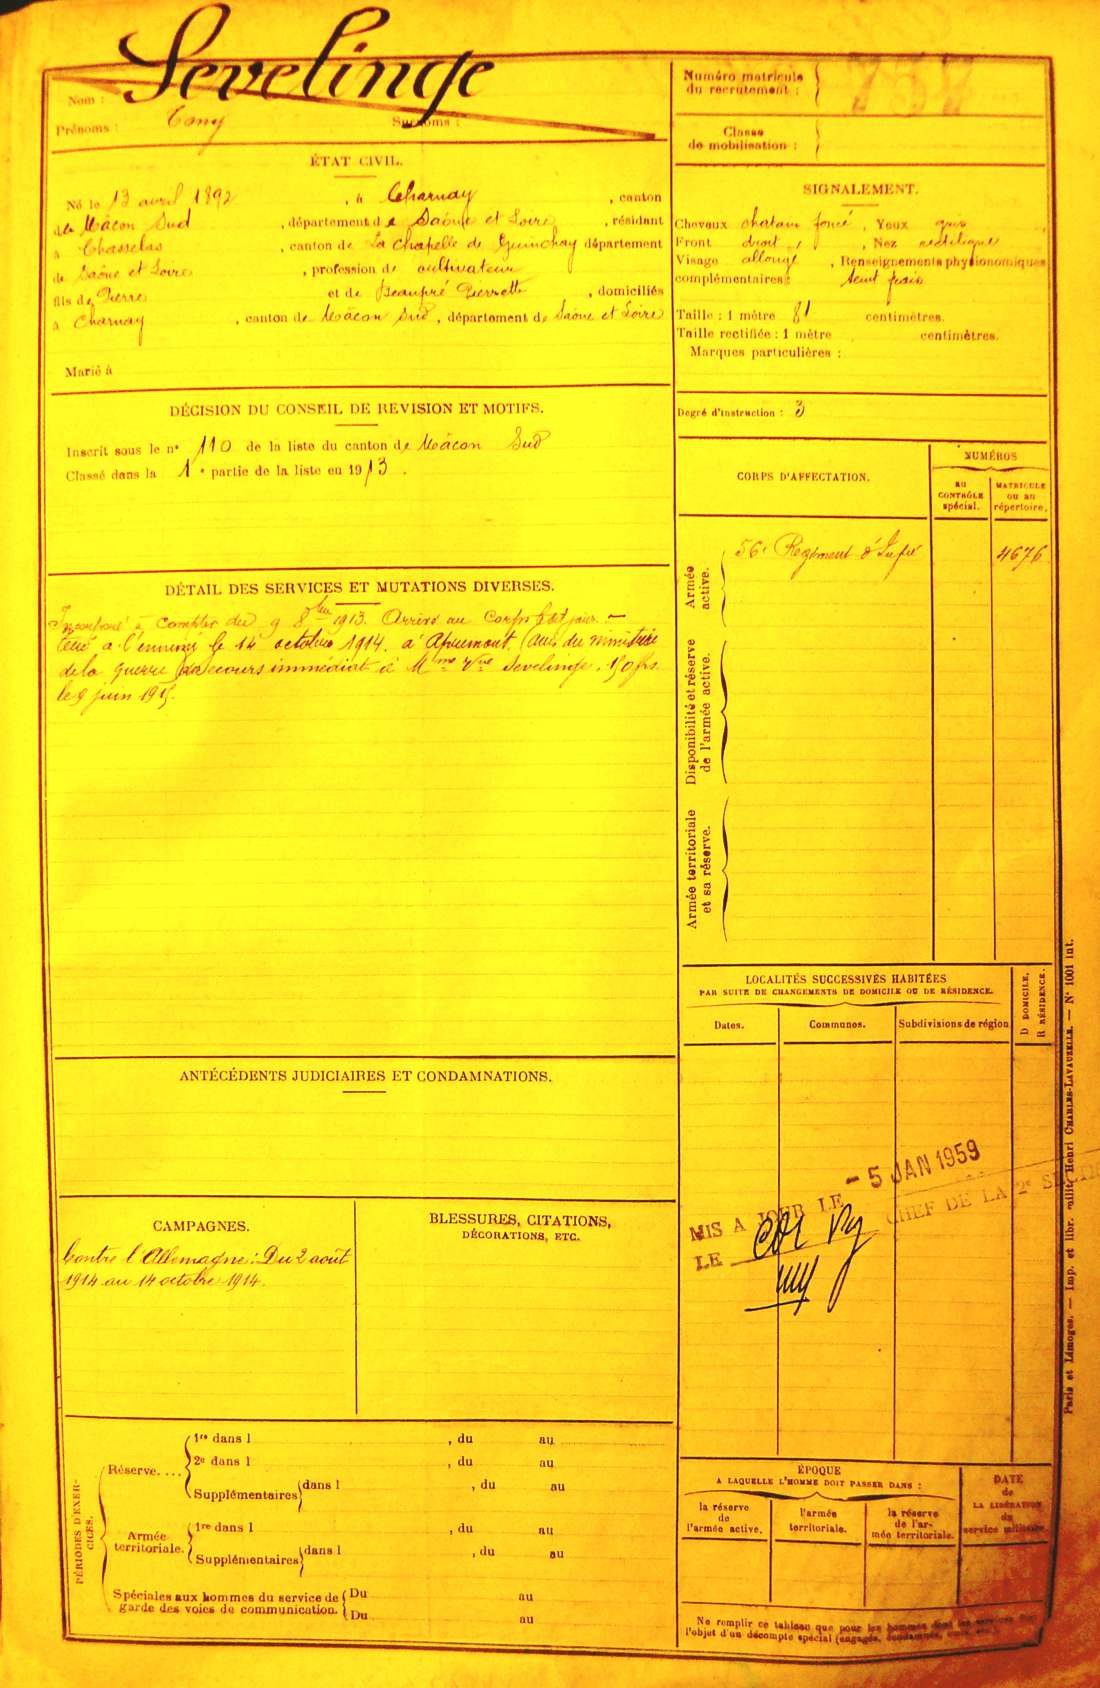 Nom : Sevelinge
Prénoms : Tony Surnoms :
Numéro matricule
du recrutement : 757
Classe
de mobilisation :
ÉTAT CIVIL.
Né le 13 avril 1892, à Charnay, canton
de Mâcon Sud, département de Saône et Loire, résidant
à Chasselas, canton de La Chapelle de Guinchay département
de Saône et Loire, profession de cultivateur
fils de Pierre et de Beaupré Pierrette, domiciliés
à Charnay, canton de Mâcon Sud, département de Saône et Loire
Marié à
SIGNALEMENT.
Cheveux chatain foncé, Yeux gris
Front droit, Nez rectiligne
Visage allongé, Renseignements physionomiques
complémentaires : teint frais
Taille : 1 mètre 81 centimètres.
Taille rectifiée : 1 mètre centimètres.
Marques particulières :
Degré d'instruction : 3
DÉCISION DU CONSEIL DE REVISION ET MOTIFS.
Inscrit sous le n° 110 de la liste du canton de Mâcon Sud
Classé dans la 1e partie de la liste en 1913.
DÉTAIL DES SERVICES ET MUTATIONS DIVERSES.
Incorporé à compter du 9 8bre 1913. Arrivé au corps le dit jour. —
tué à l'ennemi le 14 octobre 1914. à Apremont. (Avis du ministère
de la guerre) secours immédiat à Mme Vve Sevelinge. 150 frs
le 9 juin 1915.
CORPS D'AFFECTATION.
NUMÉROS
au
CONTRÔLE
spécial.
MATRICULE
ou au
répertoire.
Armée
active.
56e Régiment d'Infie 4676
Disponibilité et réserve
de l'armée active.
Armée territoriale
et sa réserve.
LOCALITÉS SUCCESSIVES HABITÉES
PAR SUITE DE CHANGEMENTS DE DOMICILE OU DE RÉSIDENCE.
Dates. Communes. Subdivisions de région
D DOMICILE.
R RÉSIDENCE.
ANTÉCÉDENTS JUDICIAIRES ET CONDAMNATIONS.
CAMPAGNES.
Contre l'Allemagne : Du 2 août
1914 au 14 octobre 1914.
BLESSURES, CITATIONS,
DÉCORATIONS, ETC.
- 5 JAN 1959
MIS A JOUR LE
LE CHEF DE LA 2e SECTION
PÉRIODES D'EXER-
CICES.
Réserve....
1re dans l , du au
2e dans l , du au
Supplémentaires dans l , du au
Armée
territoriale.
1re dans l , du au
Supplémentaires dans l , du au
Spéciales aux hommes du service de
garde des voies de communication.
Du au
Du au
ÉPOQUE
A LAQUELLE L'HOMME DOIT PASSER DANS :
la réserve
de
l'armée active.
l'armée
territoriale.
la réserve
de l'ar-
mée territoriale.
DATE
de
LA LIBÉRATION
du
service militaire.
Ne remplir ce tableau que pour les hommes dont les services font
l'objet d'un décompte spécial (engagés, condamnés, omis, etc.)
Paris et Limoges. — Imp. et libr. milit. Henri CHARLES-LAVAUZELLE. — N° 1001 int.